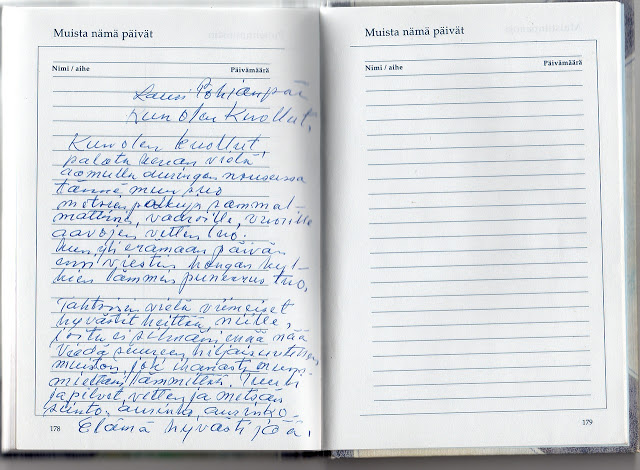 Muista nämä päivät
Nimi / aihe Päivämäärä
Lauri Pohjanpää
Kun olen kuollut.
Kun olen kuollut,
palata kerran vielä
aamulla auringon noustessa
tänne mun suo
metsien polkuja sammal-
mattoina, vaaroille, vuorille
aavojen vetten luo.
kun yli erämaan päivän
ensi viestin hongan kyl-
kien lämmin punerrus tuo.
Tahtoisin vielä viimeiset
hyvästit heittää, niille,
joita ei silmäni enää nää
Viedä suureen hiljaisuuteen
muiston, joka ihanasti mun
mieltäni lämmittää. Tuuli
ja pilvet, vetten ja metsän
aurinko, aurinko.
Elämä hyvästi jää.
178
Muista nämä päivät
Nimi / aihe Päivämäärä
179